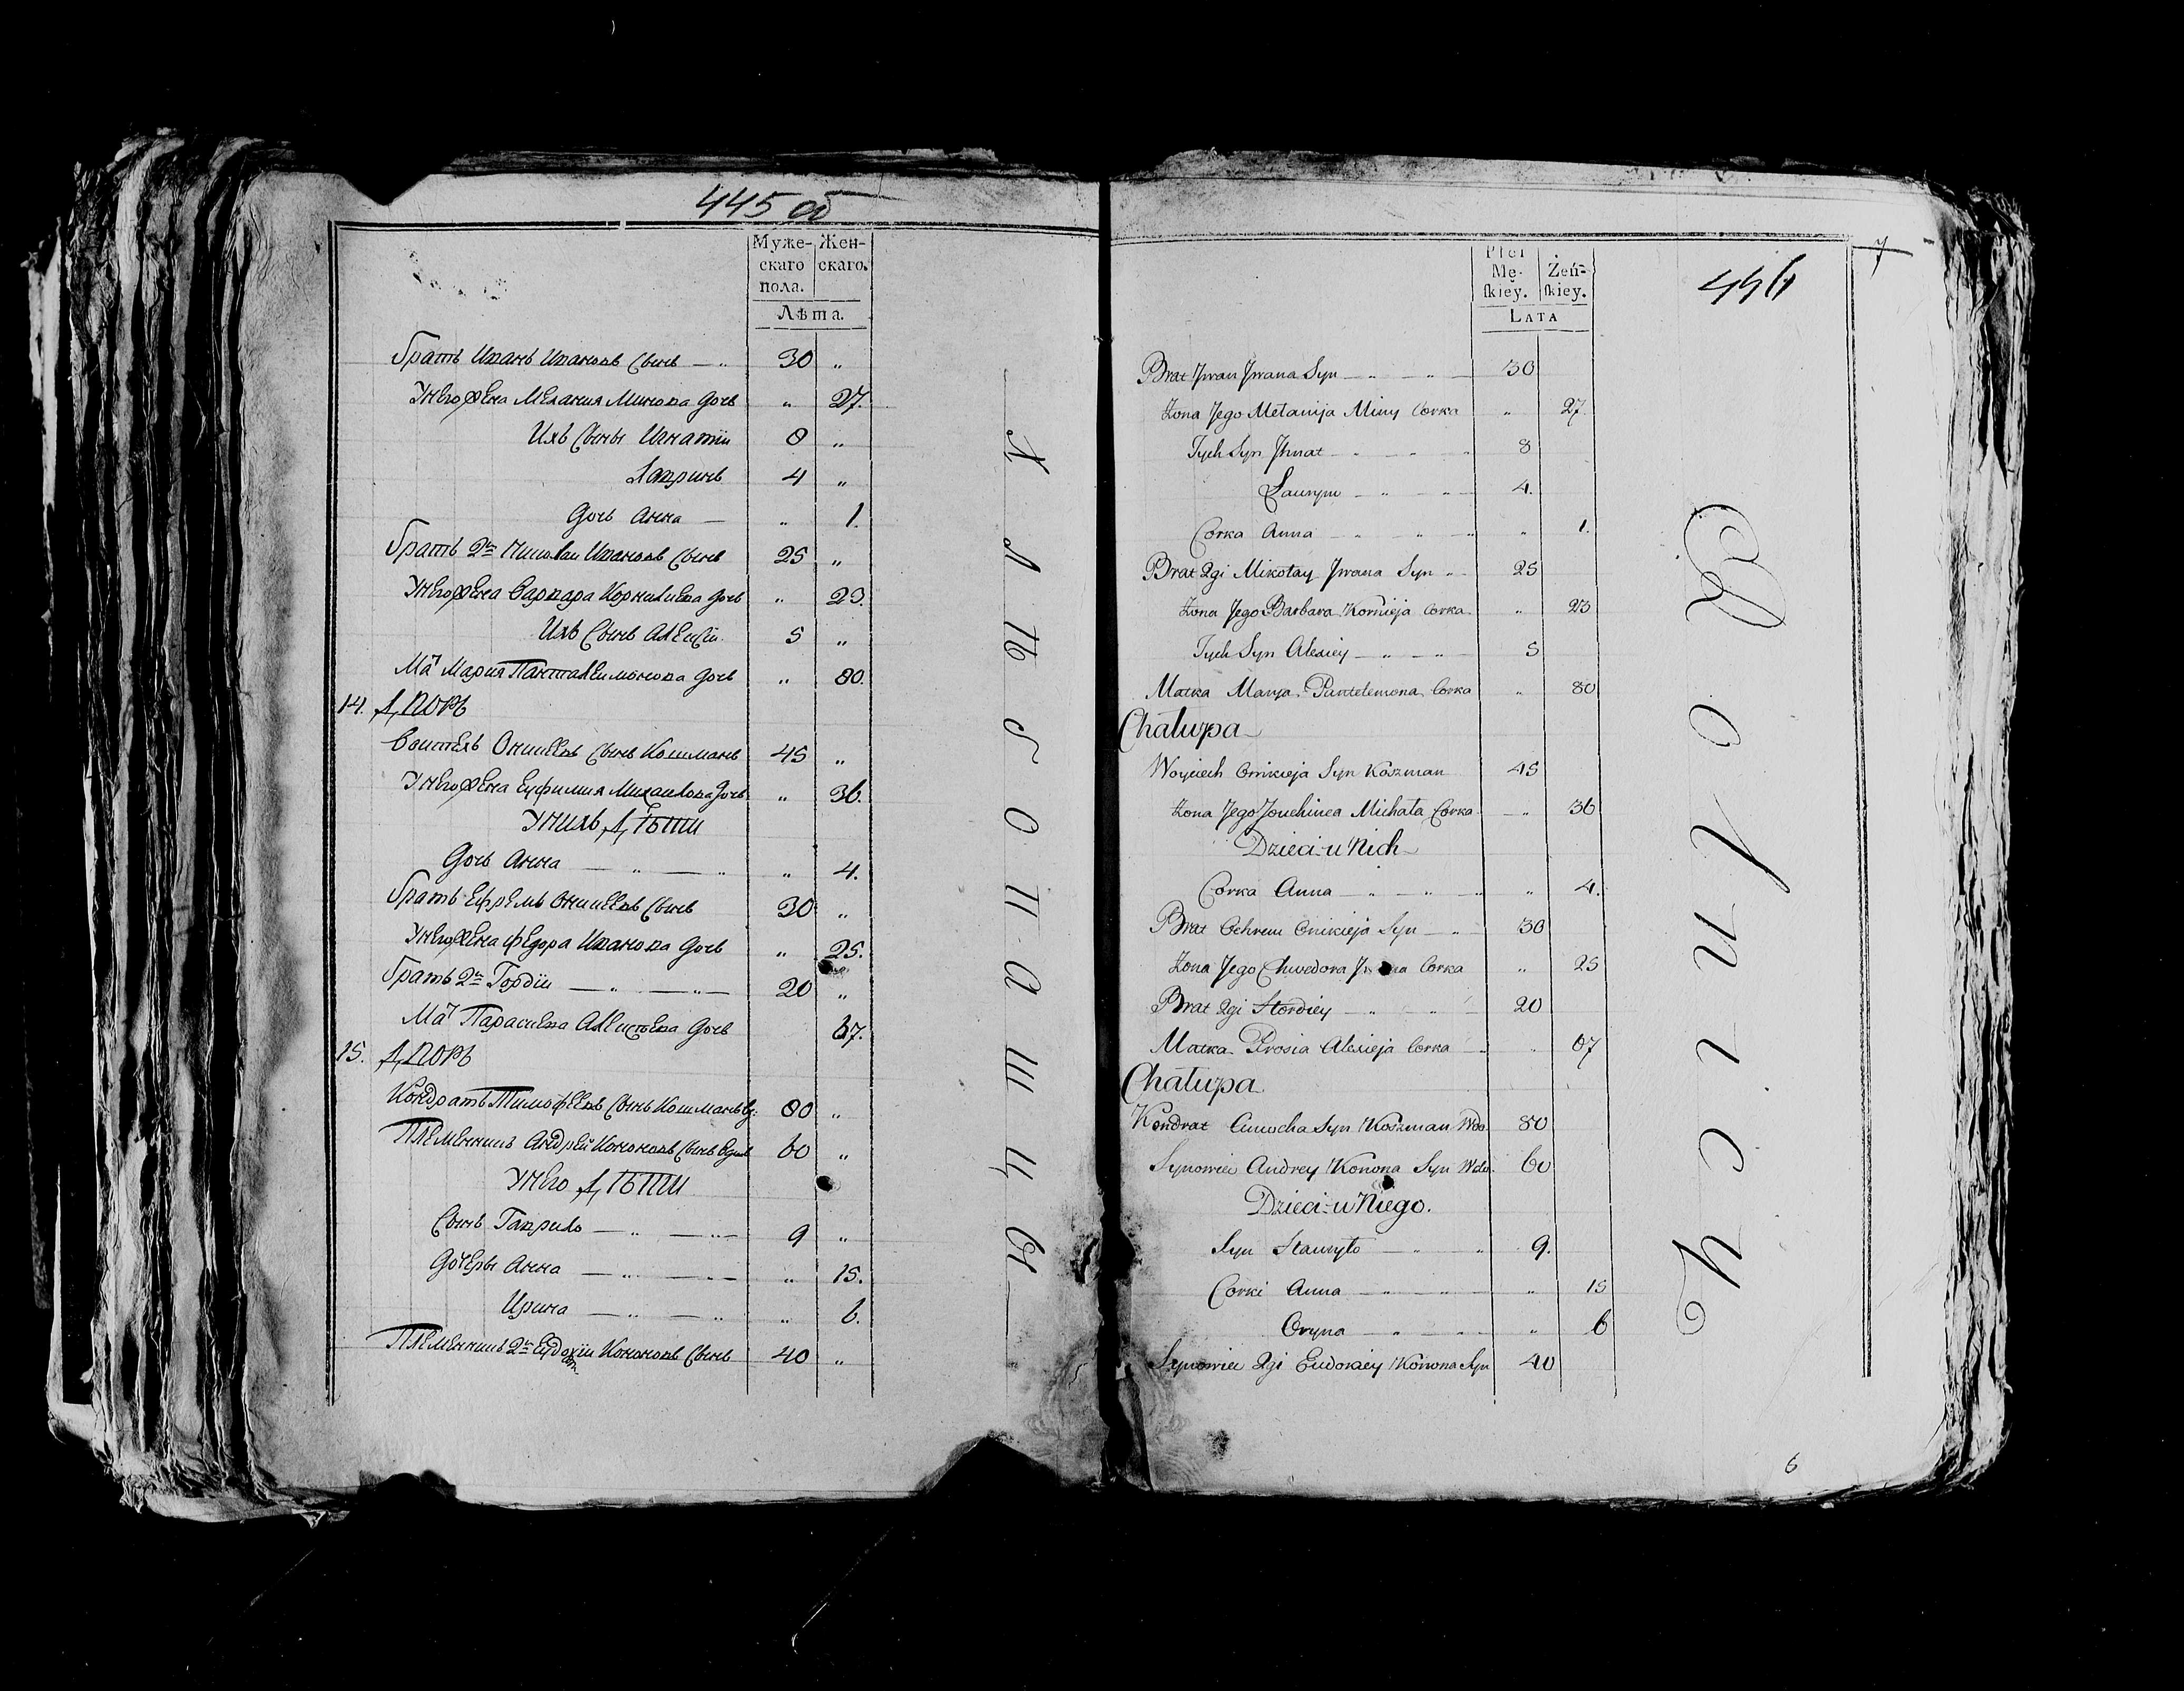 445 об
Муже-
скаго
пола.
Жен-
скаго.
Лѣта.
Братъ Иванъ Ивановъ Сынъ — „ 30 „
У него жена Мелания Минова дочь „ 27.
Ихъ Сыны Игнатiй 8 „
Лавринъ 4 „
Дочь Анна — „ 1.
Братъ 2й Николай Ивановъ Сынъ 25 „
У него жена Варвара Корнилиева дочь „ 23.
Ихъ Сынъ Алексiй 5 „
Мать Мария Пантелеимонова дочь „ 80.
14. Дворъ
Воитехъ Оникеевъ Сынъ Кошманъ 45 „
У него жена Ефимия Михаилова дочь „ 36.
У нихъ Дѣти
Дочь Анна — „ — „ „ 4.
Братъ Ефремъ Оникеевъ Сынъ 30 „
У него жена Федора Иванова дочь „ 25.
Братъ 2й Гордiй — „ — „ — 20 „
Мать Параскева Алексѣева дочь 67.
15. Дворъ
Кондратъ Тимофеевъ Сынъ Кошманъ в: 80 „
Племенникъ Андрей Кононовъ Сынъ 60 „
У него Дѣти
Сынъ Гаврило — „ — „ — 9 „
Дочеры Анна — „ — „ — „ 15.
Ирина — „ — „ „ 6.
Племенникъ 2й Кононовъ Сынъ 40 „
Хлѣбопашцы
7
446
Płci
Mę-
skiey.
Żeń-
skiey.
LATA
Brat Jwan Jwana Syn — „ — „ — 30
Żona Jego Mełanija Miny Corka „ 27.
Tych Syn Jhnat — „ — „ 8
Łauryn — „ — „ — 4.
Corka Anna — „ — „ — „ „ 1.
Brat 2gi Mikołay Jwana Syn „ — 25
Żona Jego Barbara Kornieja Corka „ 23
Tych Syn Alexiey — „ — „ — 5
Matka Marya Pantelemona Corka „ 80
Chałupa
Woyciech Onikieja Syn Koszman 45
Żona Jego Michała Corka — „ 36
Dzieci u Nich
Corka Anna — „ — „ — „ „ 4.
Brat Ochrem Onikieja Syn — „ 30
Żona Jego Chwedora Jwana Corka „ 25
Brat 2gi Hordiey — „ — „ — 20
Matka Prosia Alexieja Corka — „ „ 67
Chałupa
Kondrat Cimocha Syn Koszman Wdo. 80
Synowiec Andrey Konona Syn Wdo. 60
Dzieci u Niego.
Syn Hauryło — „ — „ 9.
Corki Anna — „ — „ — „ 15
Oryna — „ — „ — „ 6
Synowiec 2gi Eudokiey Konona Syn 40
Rolnicy
6